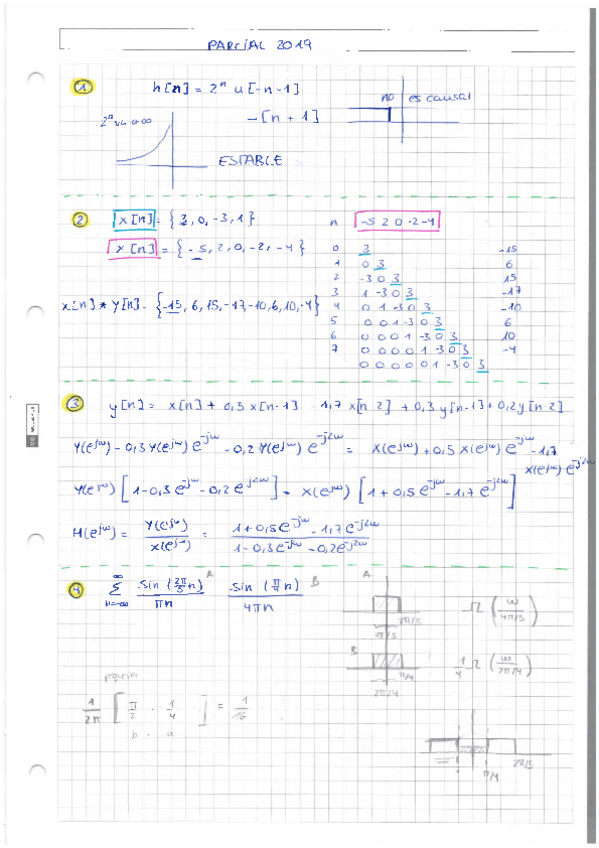 PARCIAL 2019
1
h[n] = 2ⁿ u[-n-1]
-[n+1]
no es causal
ESTABLE
2
x[n] = {3, 0, -3, 1}
y[n] = {-5, 2, 0, -2, -4}
x[n] * y[n] = {-15, 6, 15, -17, -10, 6, 10, -4}
n -5 2 0 -2 -4
0 3 -15
1 0 3 6
2 -3 0 3 15
3 1 -3 0 3 -17
4 0 1 -3 0 3 -10
5 0 0 1 -3 0 3 6
6 0 0 0 1 -3 0 3 10
7 0 0 0 0 1 -3 0 3 -4
0 0 0 0 0 1 -3 0 3
3
y[n] = x[n] + 0,5 x[n-1] - 1,7 x[n-2] + 0,3 y[n-1] + 0,2 y[n-2]
Y(e^jω) - 0,3 Y(e^jω) e^-jω - 0,2 Y(e^jω) e^-j2ω = X(e^jω) + 0,5 X(e^jω) e^-jω - 1,7
X(e^jω) e^-j2ω
Y(e^jω) [1 - 0,3 e^-jω - 0,2 e^-j2ω] = X(e^jω) [1 + 0,5 e^-jω - 1,7 e^-j2ω]
H(e^jω) = Y(e^jω) / X(e^jω) = (1 + 0,5 e^-jω - 1,7 e^-j2ω) / (1 - 0,3 e^-jω - 0,2 e^-j2ω)
4
∞ Σ n=-∞ sin(2π/5 n) / πn A sin(π/4 n) / 4πn B
A
2π/5
4π/5
Π (ω / 4π/5)
B
π/4
2π/4
1/4 Π (ω / 2π/4)
1/2π [π/2 · 1/4] = 1/16
b · a
π/4
2π/5